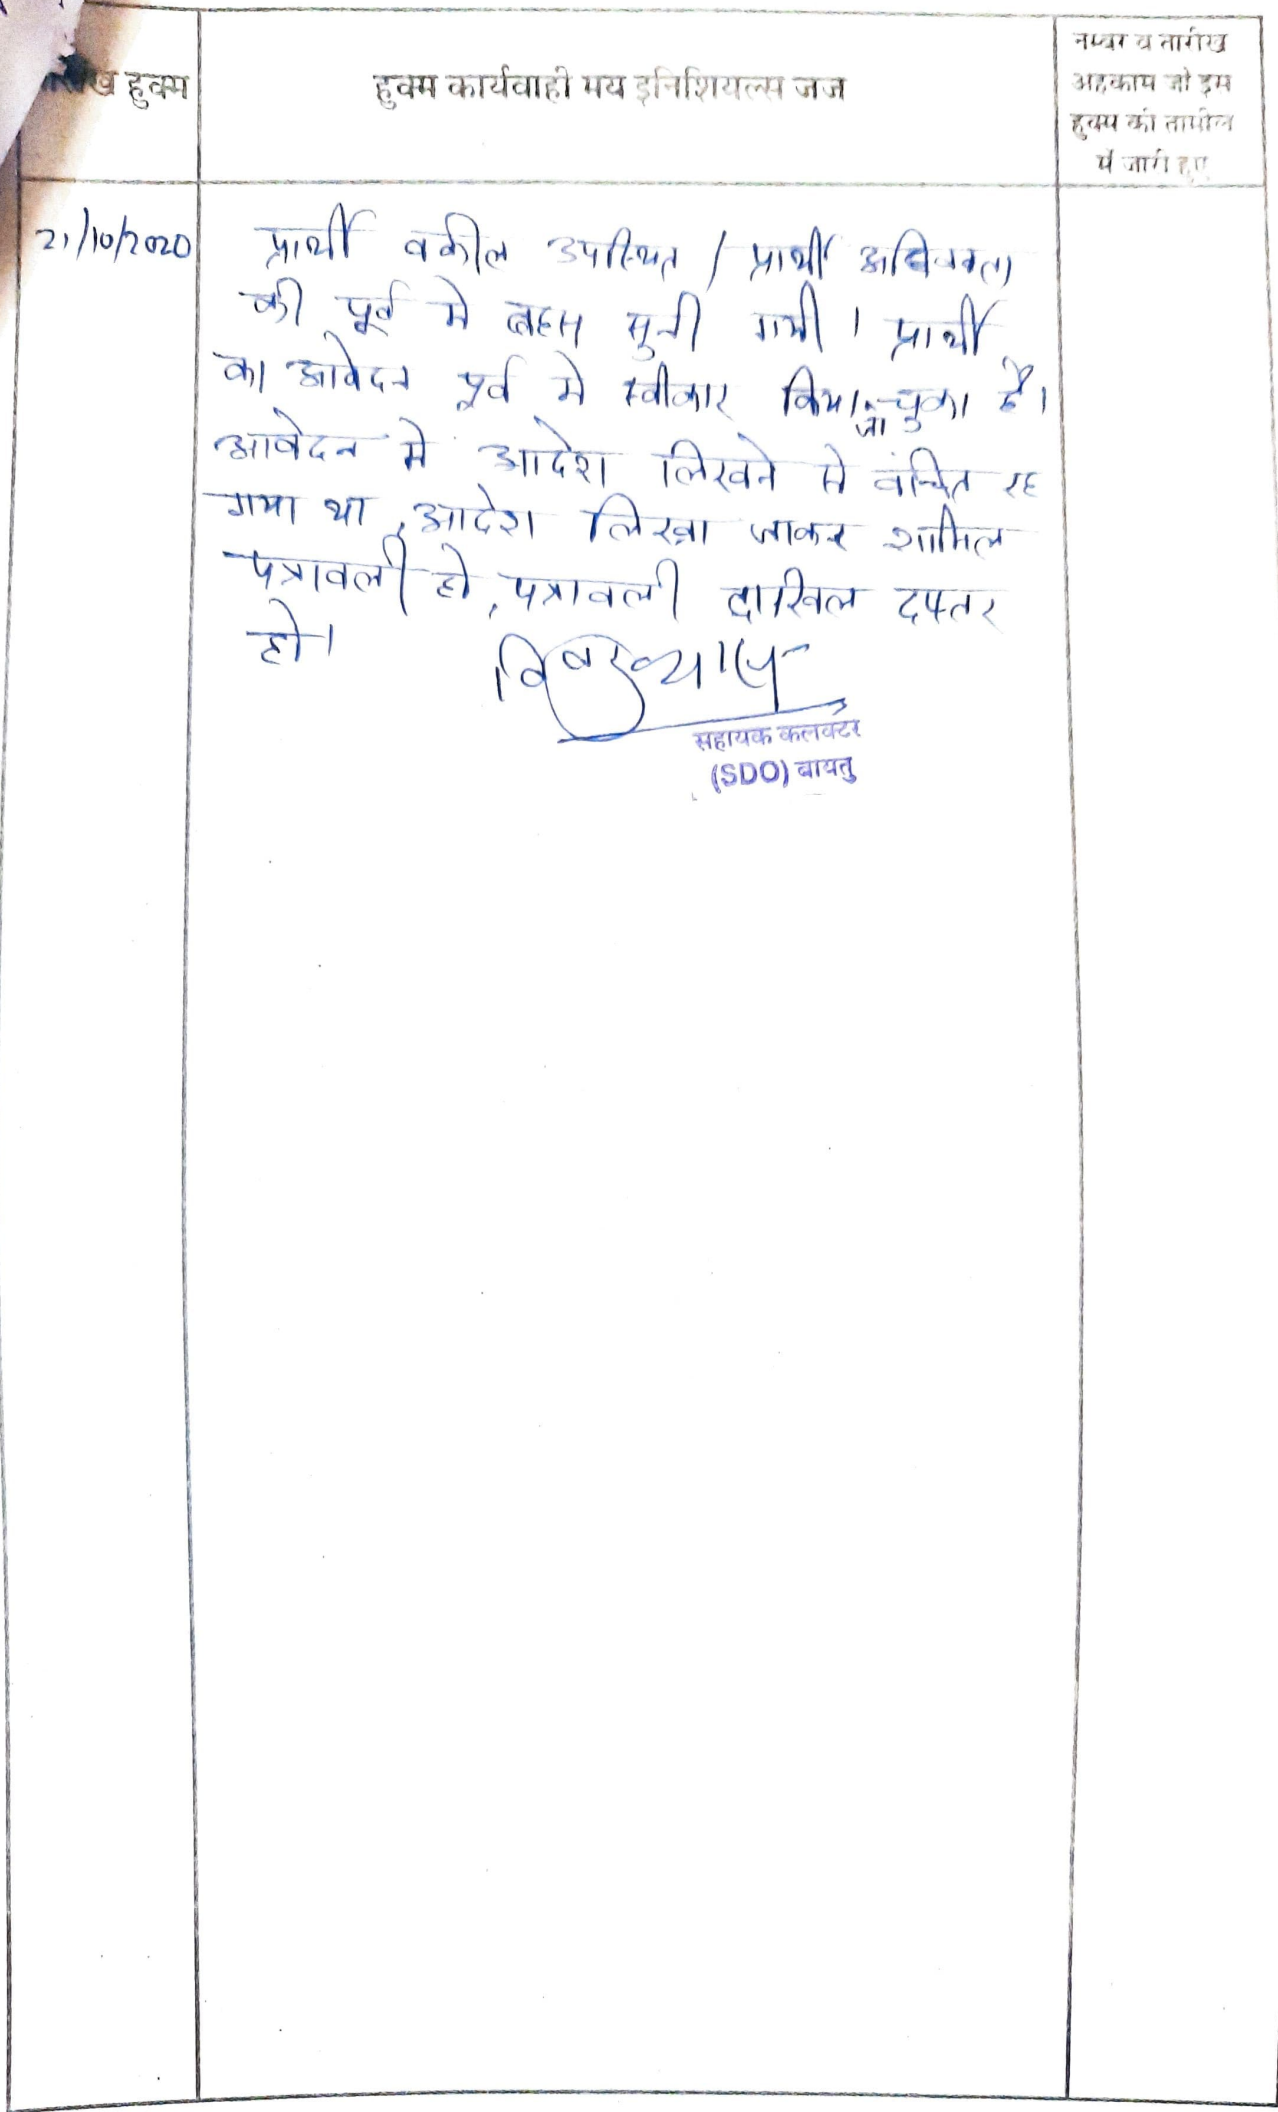 ख हुक्म
हुक्म कार्यवाही मय इनिशियल्स जज
नम्बर व तारीख
अहकाम जो इस
हुक्म की तामील
में जारी हुए
21/10/2020
प्रार्थी वकील उपस्थित / प्रार्थी अधिवक्ता
की पूर्व मे बहस सुनी गयी । प्रार्थी
का आवेदन पूर्व मे स्वीकार किया जा चुका है।
आवेदन मे आदेश लिखने से वंचित रह
गया था, आदेश लिखा जाकर शामिल
पत्रावली हो, पत्रावली दाखिल दफ्तर
हो।
सहायक कलक्टर
(SDO) बायतु